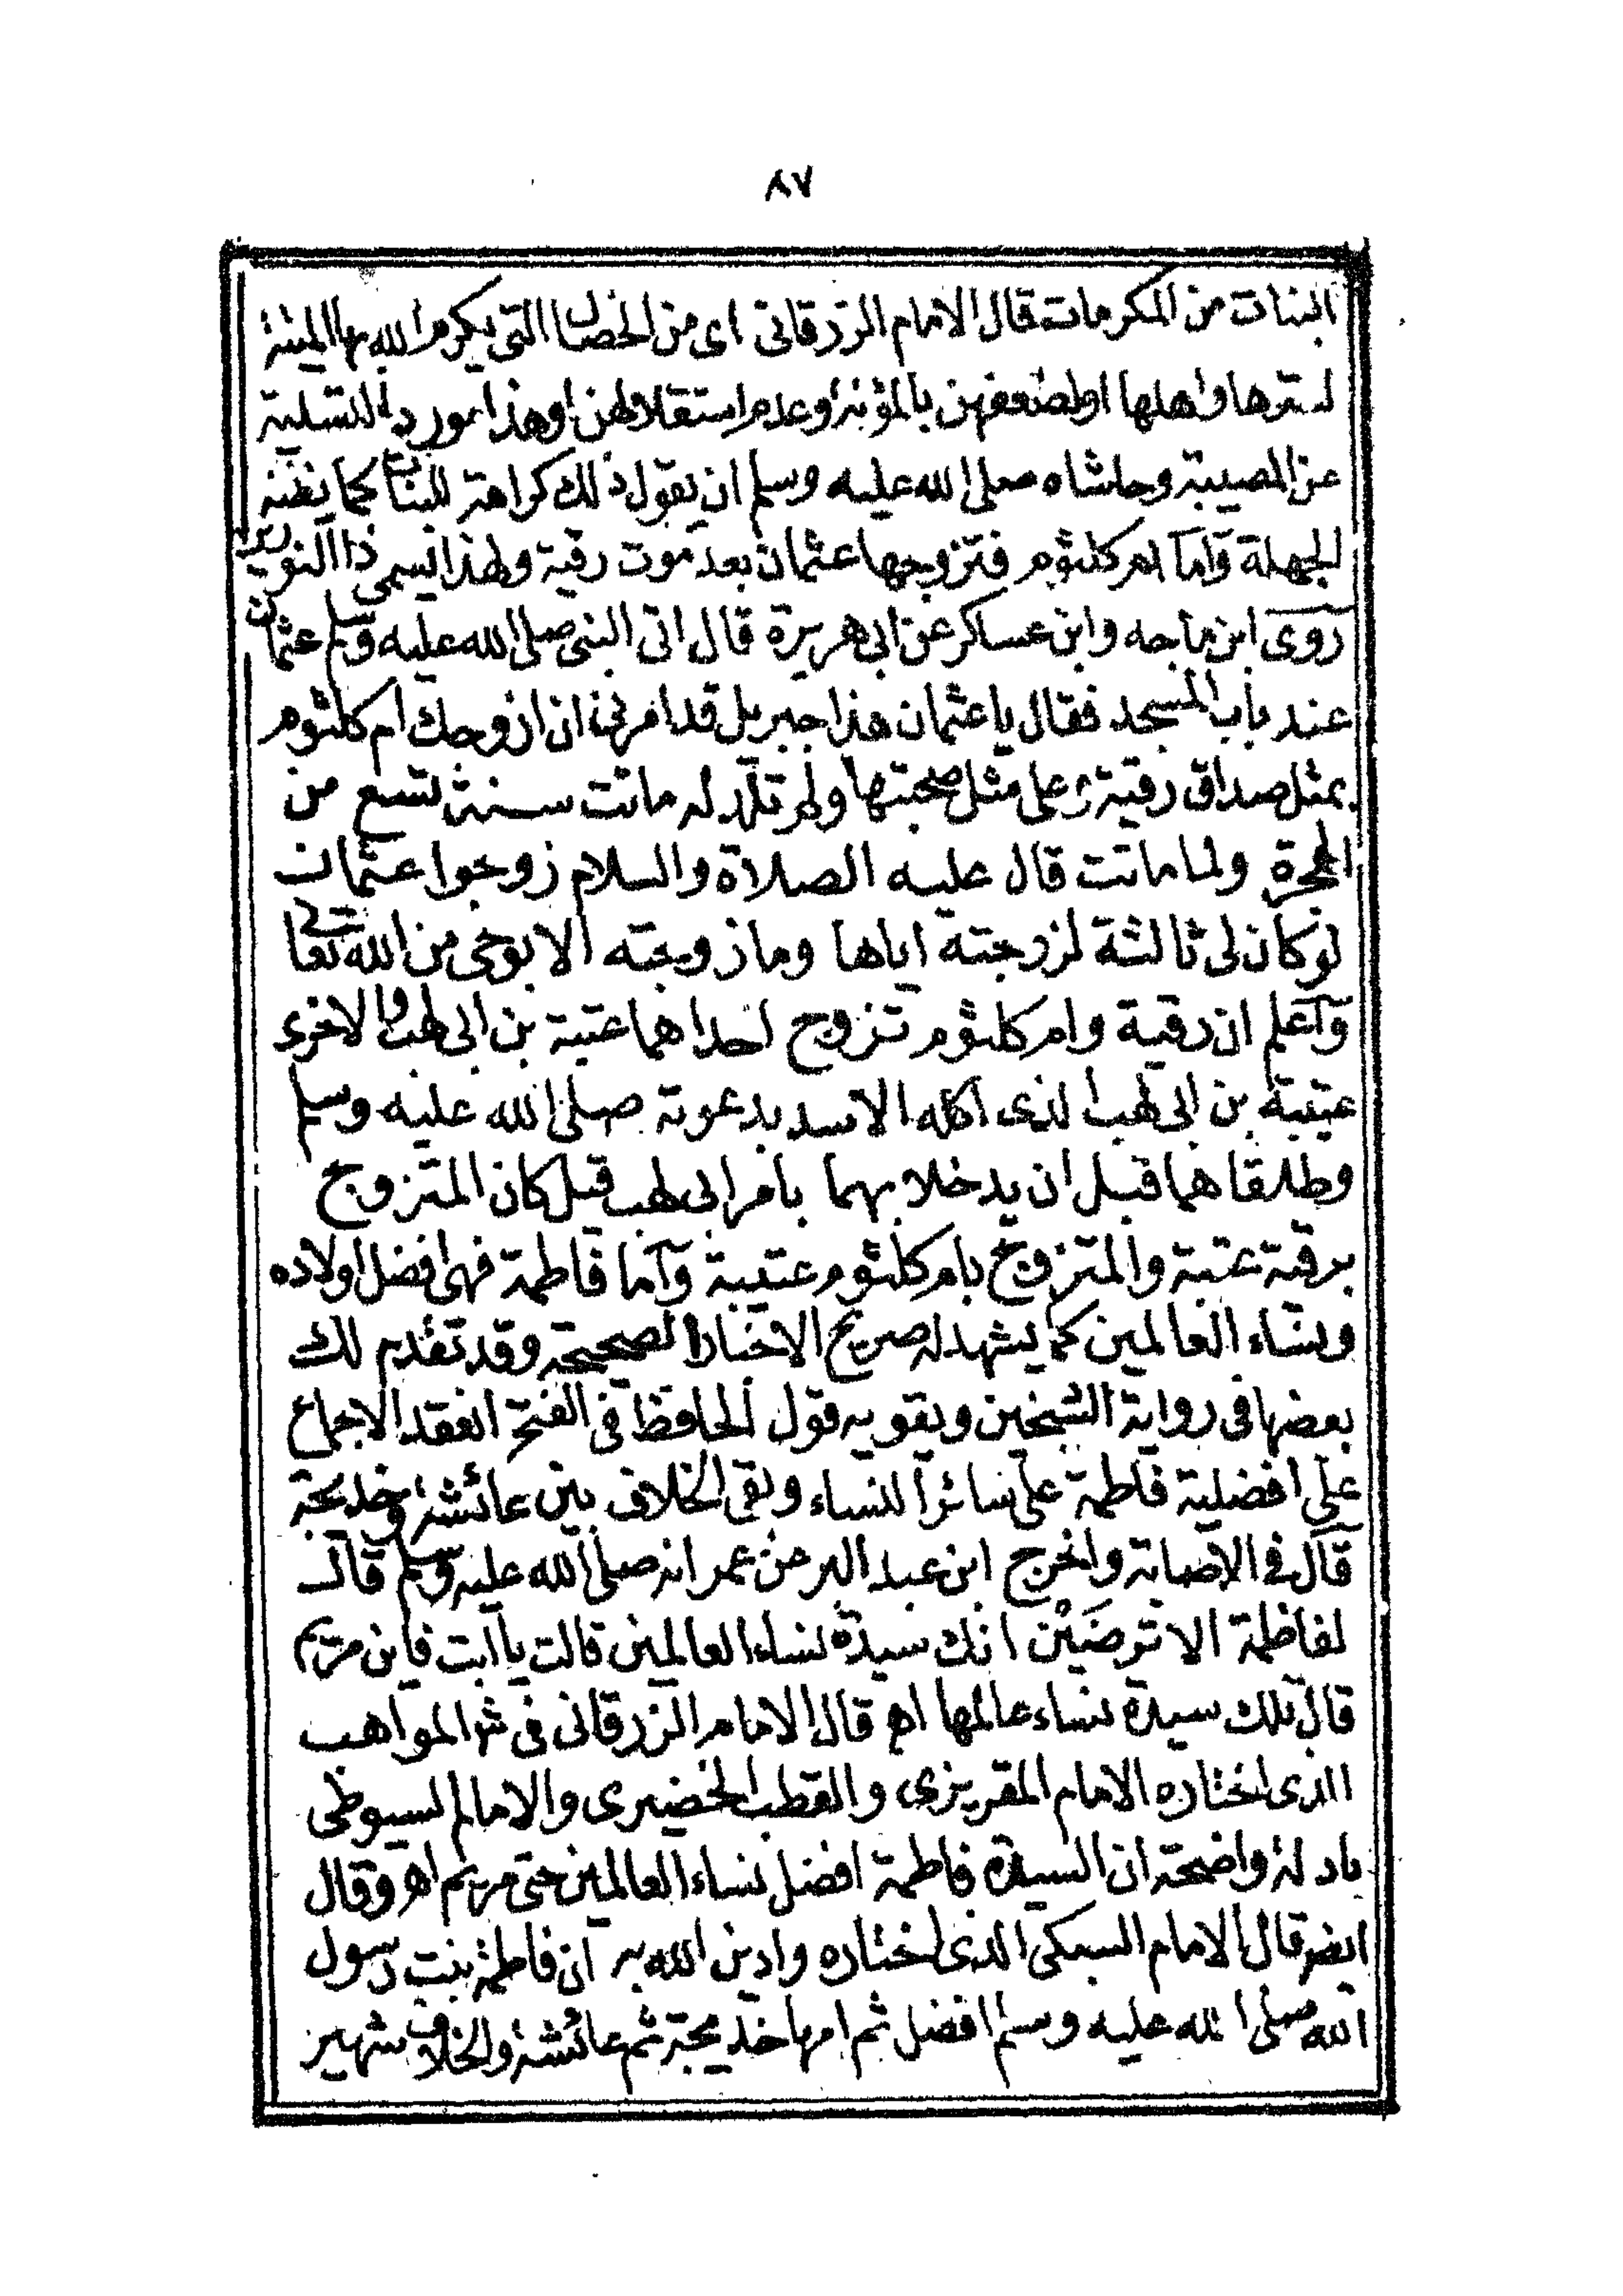 ٨٧
البنات من المكرمات قال الامام الزرقانى اى من الخصال التى يكرم الله بها الميتة
لسترها واهلها اولضعفهن بالمؤنة وعدم استقلالهن وهذا مورد للتسلية
عن المصيبة وحاشاه صلى الله عليه وسلم ان يقول ذلك كراهة للبنات كما يظنه
الجهلة وآما ام كلثوم فتزوجها عثمان بعد موت رقية ولهذا يسمى ذا النورين
روى ابن ماجه وابن عساكر عن ابى هريرة قال اتى النبى صلى الله عليه وسلم عثمان
عند باب المسجد فقال يا عثمان هذا جبريل قد امرنى ان ازوجك ام كلثوم
بمثل صداق رقية وعلى مثل صحبتها ولم تلد له ماتت سنة تسع من
الهجرة ولما ماتت قال عليه الصلاة والسلام زوجوا عثمان
لو كان لى ثالثة لزوجته اياها وما زوجته الا بوحى من الله تعالى
وآعلم ان رقية وام كلثوم تزوج احداهما عتبة بن ابى لهب والاخرى
عتيبة بن ابى لهب الذى اكله الاسد بدعوته صلى الله عليه وسلم
وطلقاهما قبل ان يدخلا بهما بامر ابى لهب قيل كان المتزوج
برقية عتبة والمتزوج بام كلثوم عتيبة وآما فاطمة فهى افضل اولاده
ونساء العالمين كما يشهد له صريح الاخبار الصحيحة وقد تقدم لك
بعضها فى رواية الشيخين ويقويه قول الحافظ فى الفتح انعقد الاجماع
على افضلية فاطمة على سائر النساء وبقى الخلاف بين عائشة وخديجة
قال فى الاصابة واخرج ابن عبد البر عن عمر انه صلى الله عليه وسلم قال
لفاطمة الا ترضَيْن انك سيدة نساء العالمين قالت يا ابت فاين مريم
قال تلك سيدة نساء عالمها اه قال الامام الزرقانى فى شر المواهب
الذى اختاره الامام المقريزى والقطب الخضيرى والامام السيوطى
بادلة واضحة ان السيدة فاطمة افضل نساء العالمين حتى مريم اه وقال
ايضر قال الامام السبكى الذى اختاره وادين الله به ان فاطمة بنت رسول
الله صلى الله عليه وسلم افضل ثم امها خديجة ثم عائشة والخلاف شهير